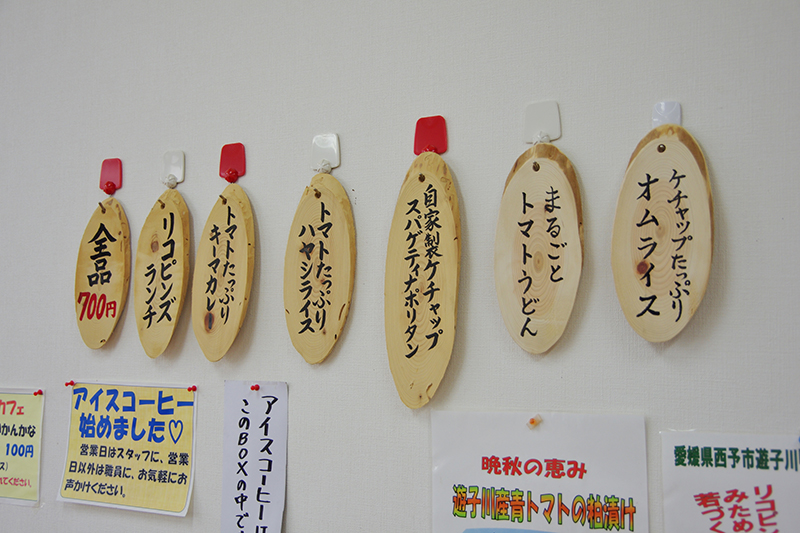 全品
700円
リコピンズ
ランチ
トマトたっぷり
キーマカレー
トマトたっぷり
ハヤシライス
自家製ケチャップ
スパゲティナポリタン
まるごと
トマトうどん
ケチャップたっぷり
オムライス
カフェ
かんかな
100円
ください。
アイスコーヒー
始めました♡
営業日はスタッフに、営業
日以外は職員に、お気軽にお
声かけください。
アイスコーヒーは
このBOXの中で
晩秋の恵み
遊子川産青トマトの粕漬け
愛媛県西予市遊子川
リコピン
みため
若づく